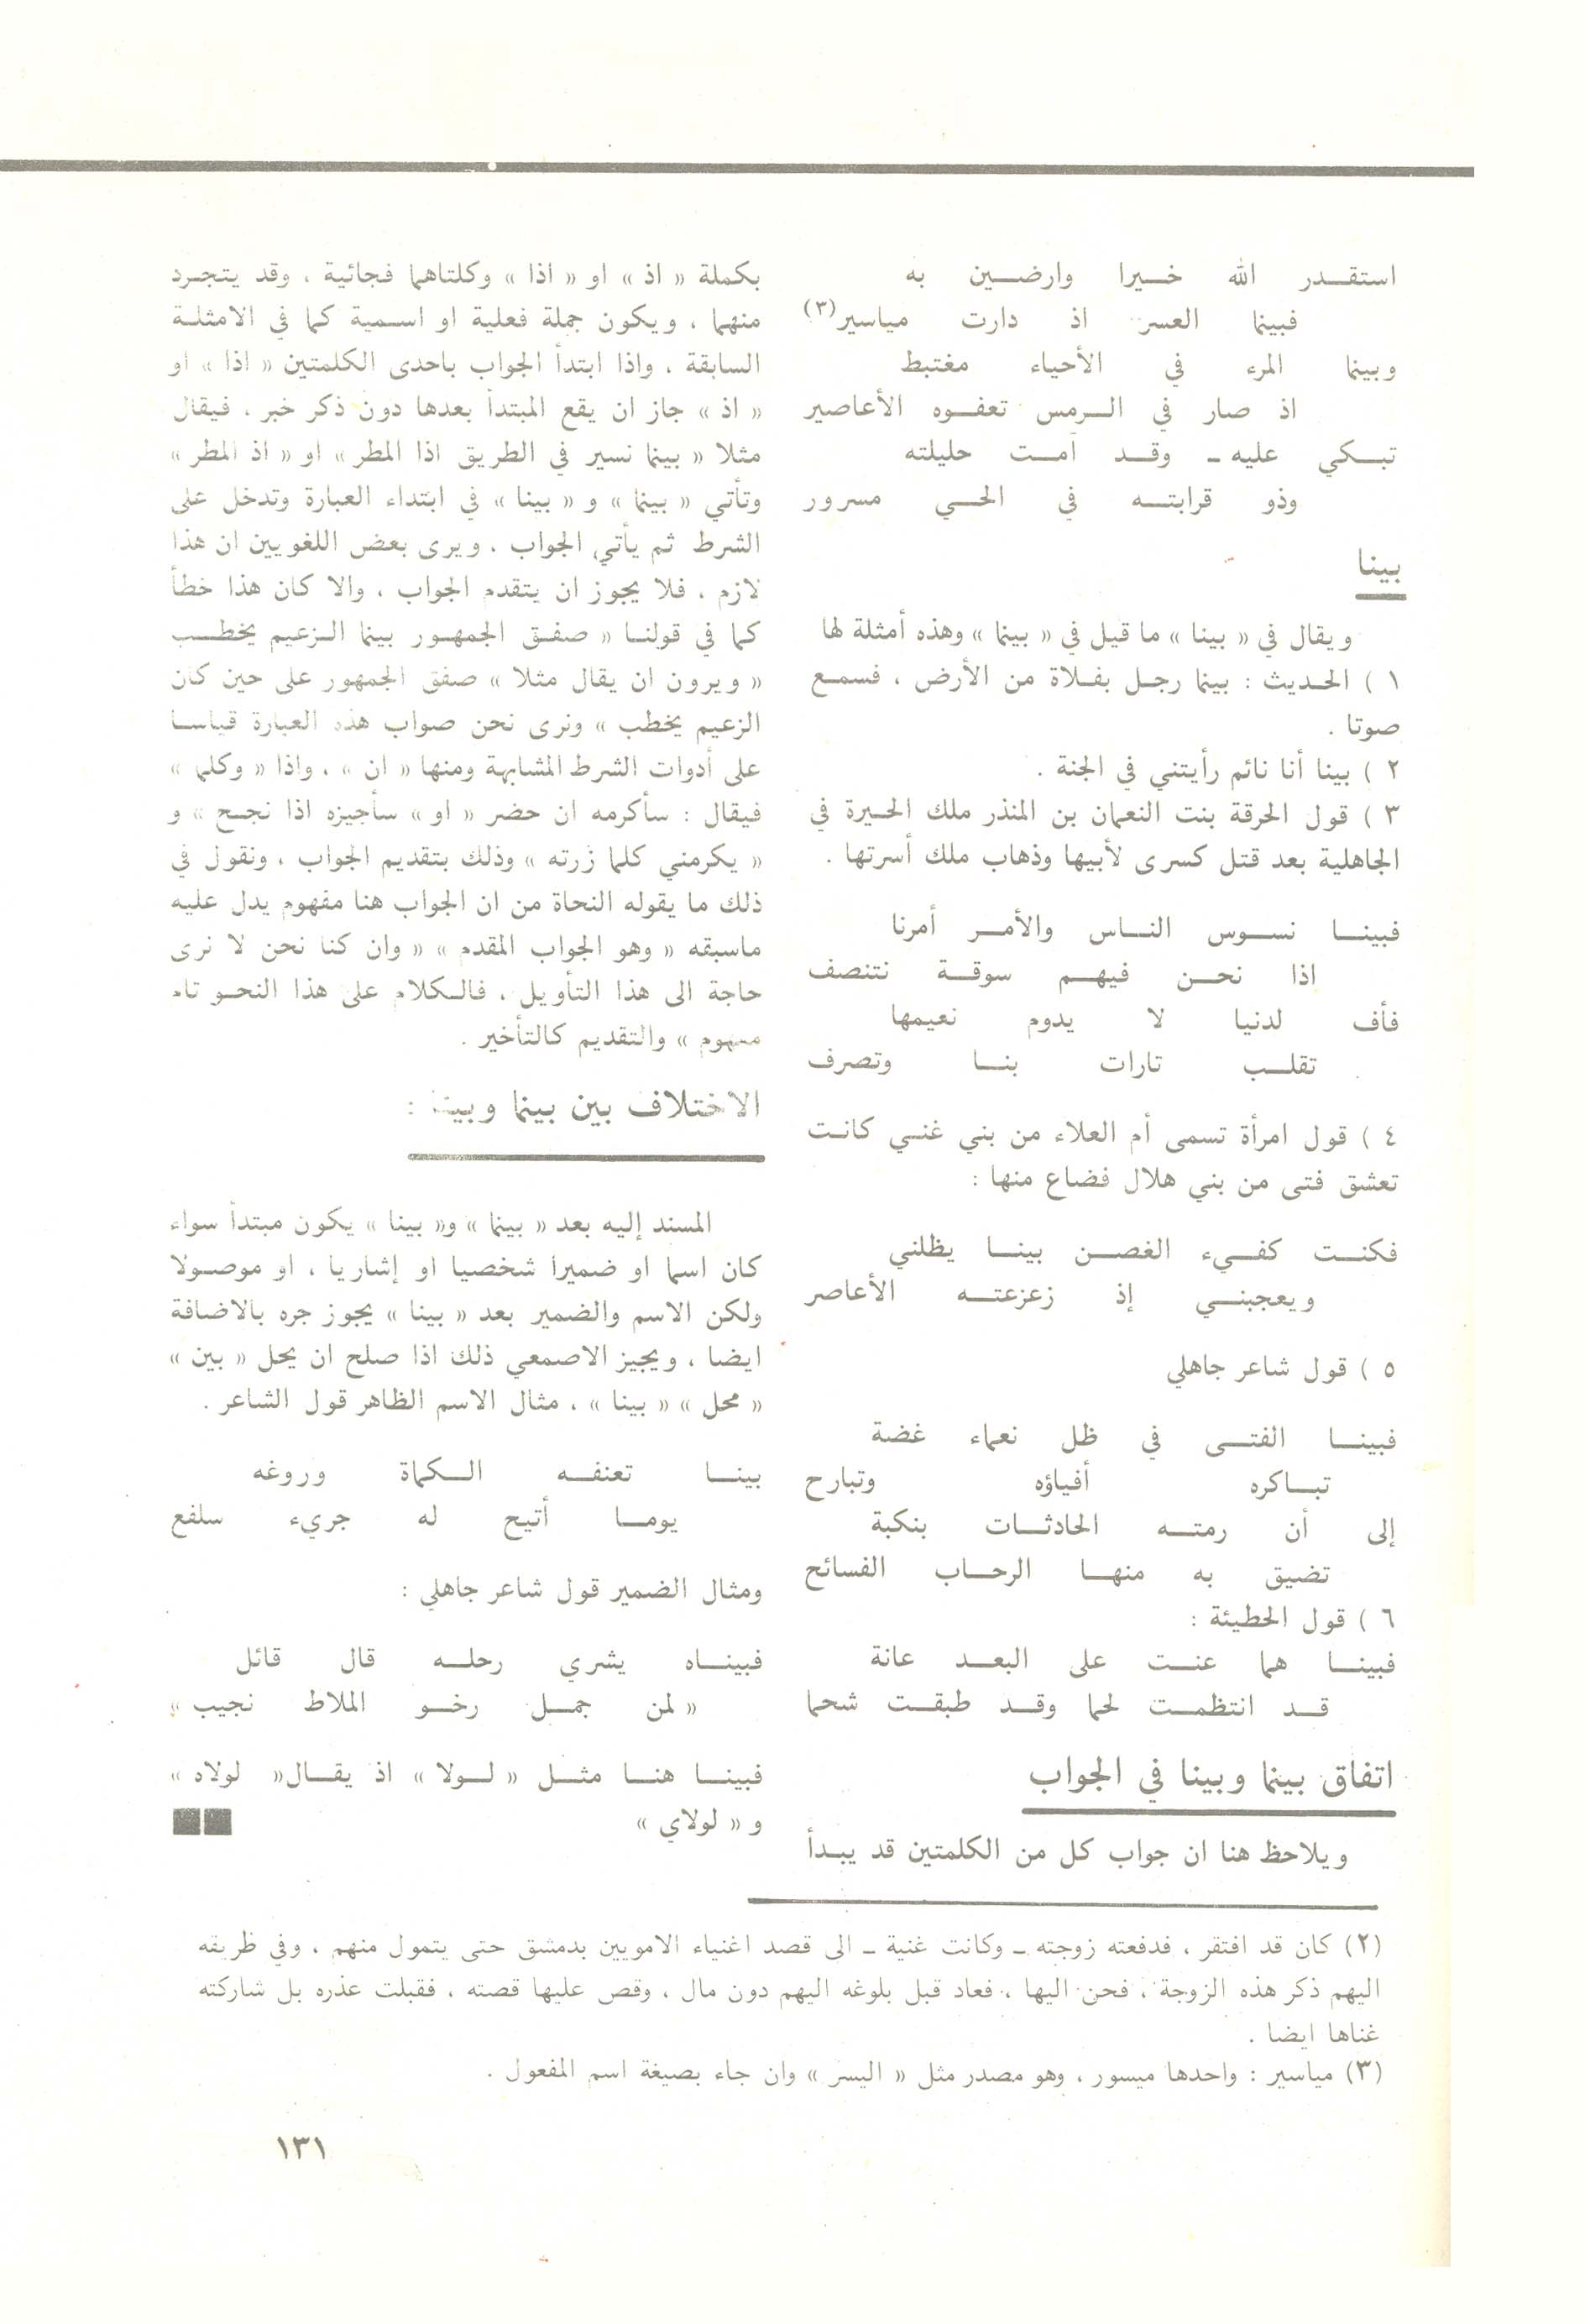 استقدر الله خيرا وارضين به
فبينما العسر اذ دارت مياسير(٣)
وبينما المرء في الأحياء مغتبط
اذ صار في الرمس تعفوه الأعاصير
تبكي عليه ـ وقد آمت حليلته
وذو قرابته في الحي مسرور
بينا
ويقال في « بينا » ما قيل في « بينما » وهذه أمثلة لها
١ ) الحديث : بينما رجل بفلاة من الأرض ، فسمع
صوتا .
٢ ) بينا أنا نائم رأيتني في الجنة .
٣ ) قول الحرقة بنت النعمان بن المنذر ملك الحيرة في
الجاهلية بعد قتل كسرى لأبيها وذهاب ملك أسرتها .
فبينا نسوس الناس والأمر أمرنا
اذا نحن فيهم سوقة نتنصف
فأف لدنيا لا يدوم نعيمها
تقلب تارات بنا وتصرف
٤ ) قول امرأة تسمى أم العلاء من بني غني كانت
تعشق فتى من بني هلال فضاع منها :
فكنت كفيء الغصن بينا يظلني
ويعجبني إذ زعزعته الأعاصر
٥ ) قول شاعر جاهلي
فبينا الفتى في ظل نعماء غضة
تباكره أفياؤه وتبارح
إلى أن رمته الحادثات بنكبة
تضيق به منها الرحاب الفسائح
٦ ) قول الحطيئة :
فبينا هما عنت على البعد عانة
قد انتظمت لحما وقد طبقت شحما
اتفاق بينما وبينا في الجواب
ويلاحظ هنا ان جواب كل من الكلمتين قد يبدأ
بكملة « اذ » او « اذا » وكلتاهما فجائية ، وقد يتجرد
منهما ، ويكون جملة فعلية او اسمية كما في الامثلة
السابقة ، واذا ابتدأ الجواب باحدى الكلمتين « اذا » او
« اذ » جاز ان يقع المبتدأ بعدها دون ذكر خبر ، فيقال
مثلا « بينما نسير في الطريق اذا المطر » او « اذ المطر »
وتأتي « بينما » و « بينا » في ابتداء العبارة وتدخل على
الشرط ثم يأتي الجواب ، ويرى بعض اللغويين ان هذا
لازم ، فلا يجوز ان يتقدم الجواب ، والا كان هذا خطأ
كما في قولنا « صفق الجمهور بينما الزعيم يخطب
« ويرون ان يقال مثلا » صفق الجمهور على حين كان
الزعيم يخطب » ونرى نحن صواب هذه العبارة قياسا
على أدوات الشرط المشابهة ومنها « ان » ، واذا « وكلما »
فيقال : سأكرمه ان حضر « او » سأجيزه اذا نجح » و
« يكرمني كلما زرته » وذلك بتقديم الجواب ، ونقول في
ذلك ما يقوله النحاة من ان الجواب هنا مفهوم يدل عليه
ماسبقه « وهو الجواب المقدم » « وان كنا نحن لا نرى
حاجة الى هذا التأويل ، فالكلام على هذا النحو تام
مفهوم » والتقديم كالتأخير .
الاختلاف بين بينما وبينا :
المسند إليه بعد « بينما » و« بينا » يكون مبتدأ سواء
كان اسما او ضميرا شخصيا او إشاريا ، او موصولا
ولكن الاسم والضمير بعد « بينا » يجوز جره بالاضافة
ايضا ، ويجيز الاصمعي ذلك اذا صلح ان يحل « بين »
« محل » « بينا » ، مثال الاسم الظاهر قول الشاعر .
بينا تعنفه الكماة وروغه
يوما أتيح له جريء سلفع
ومثال الضمير قول شاعر جاهلي :
فبيناه يشري رحله قال قائل
« لمن جمل رخو الملاط نجيب »
فبينا هنا مثل « لولا » اذ يقال« لولاه »
و « لولاي »
(٢) كان قد افتقر ، فدفعته زوجته ـ وكانت غنية ـ الى قصد اغنياء الامويين بدمشق حتى يتمول منهم ، وفي طريقه
اليهم ذكر هذه الزوجة ، فحن اليها ، فعاد قبل بلوغه اليهم دون مال ، وقص عليها قصته ، فقبلت عذره بل شاركته
غناها ايضا .
(٣) مياسير : واحدها ميسور ، وهو مصدر مثل « اليسر » وان جاء بصيغة اسم المفعول .
١٣١